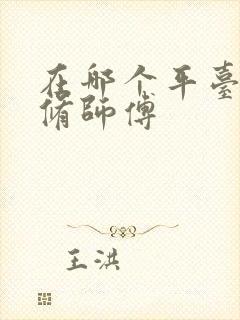 在那个平臺
脩師傅
王洪